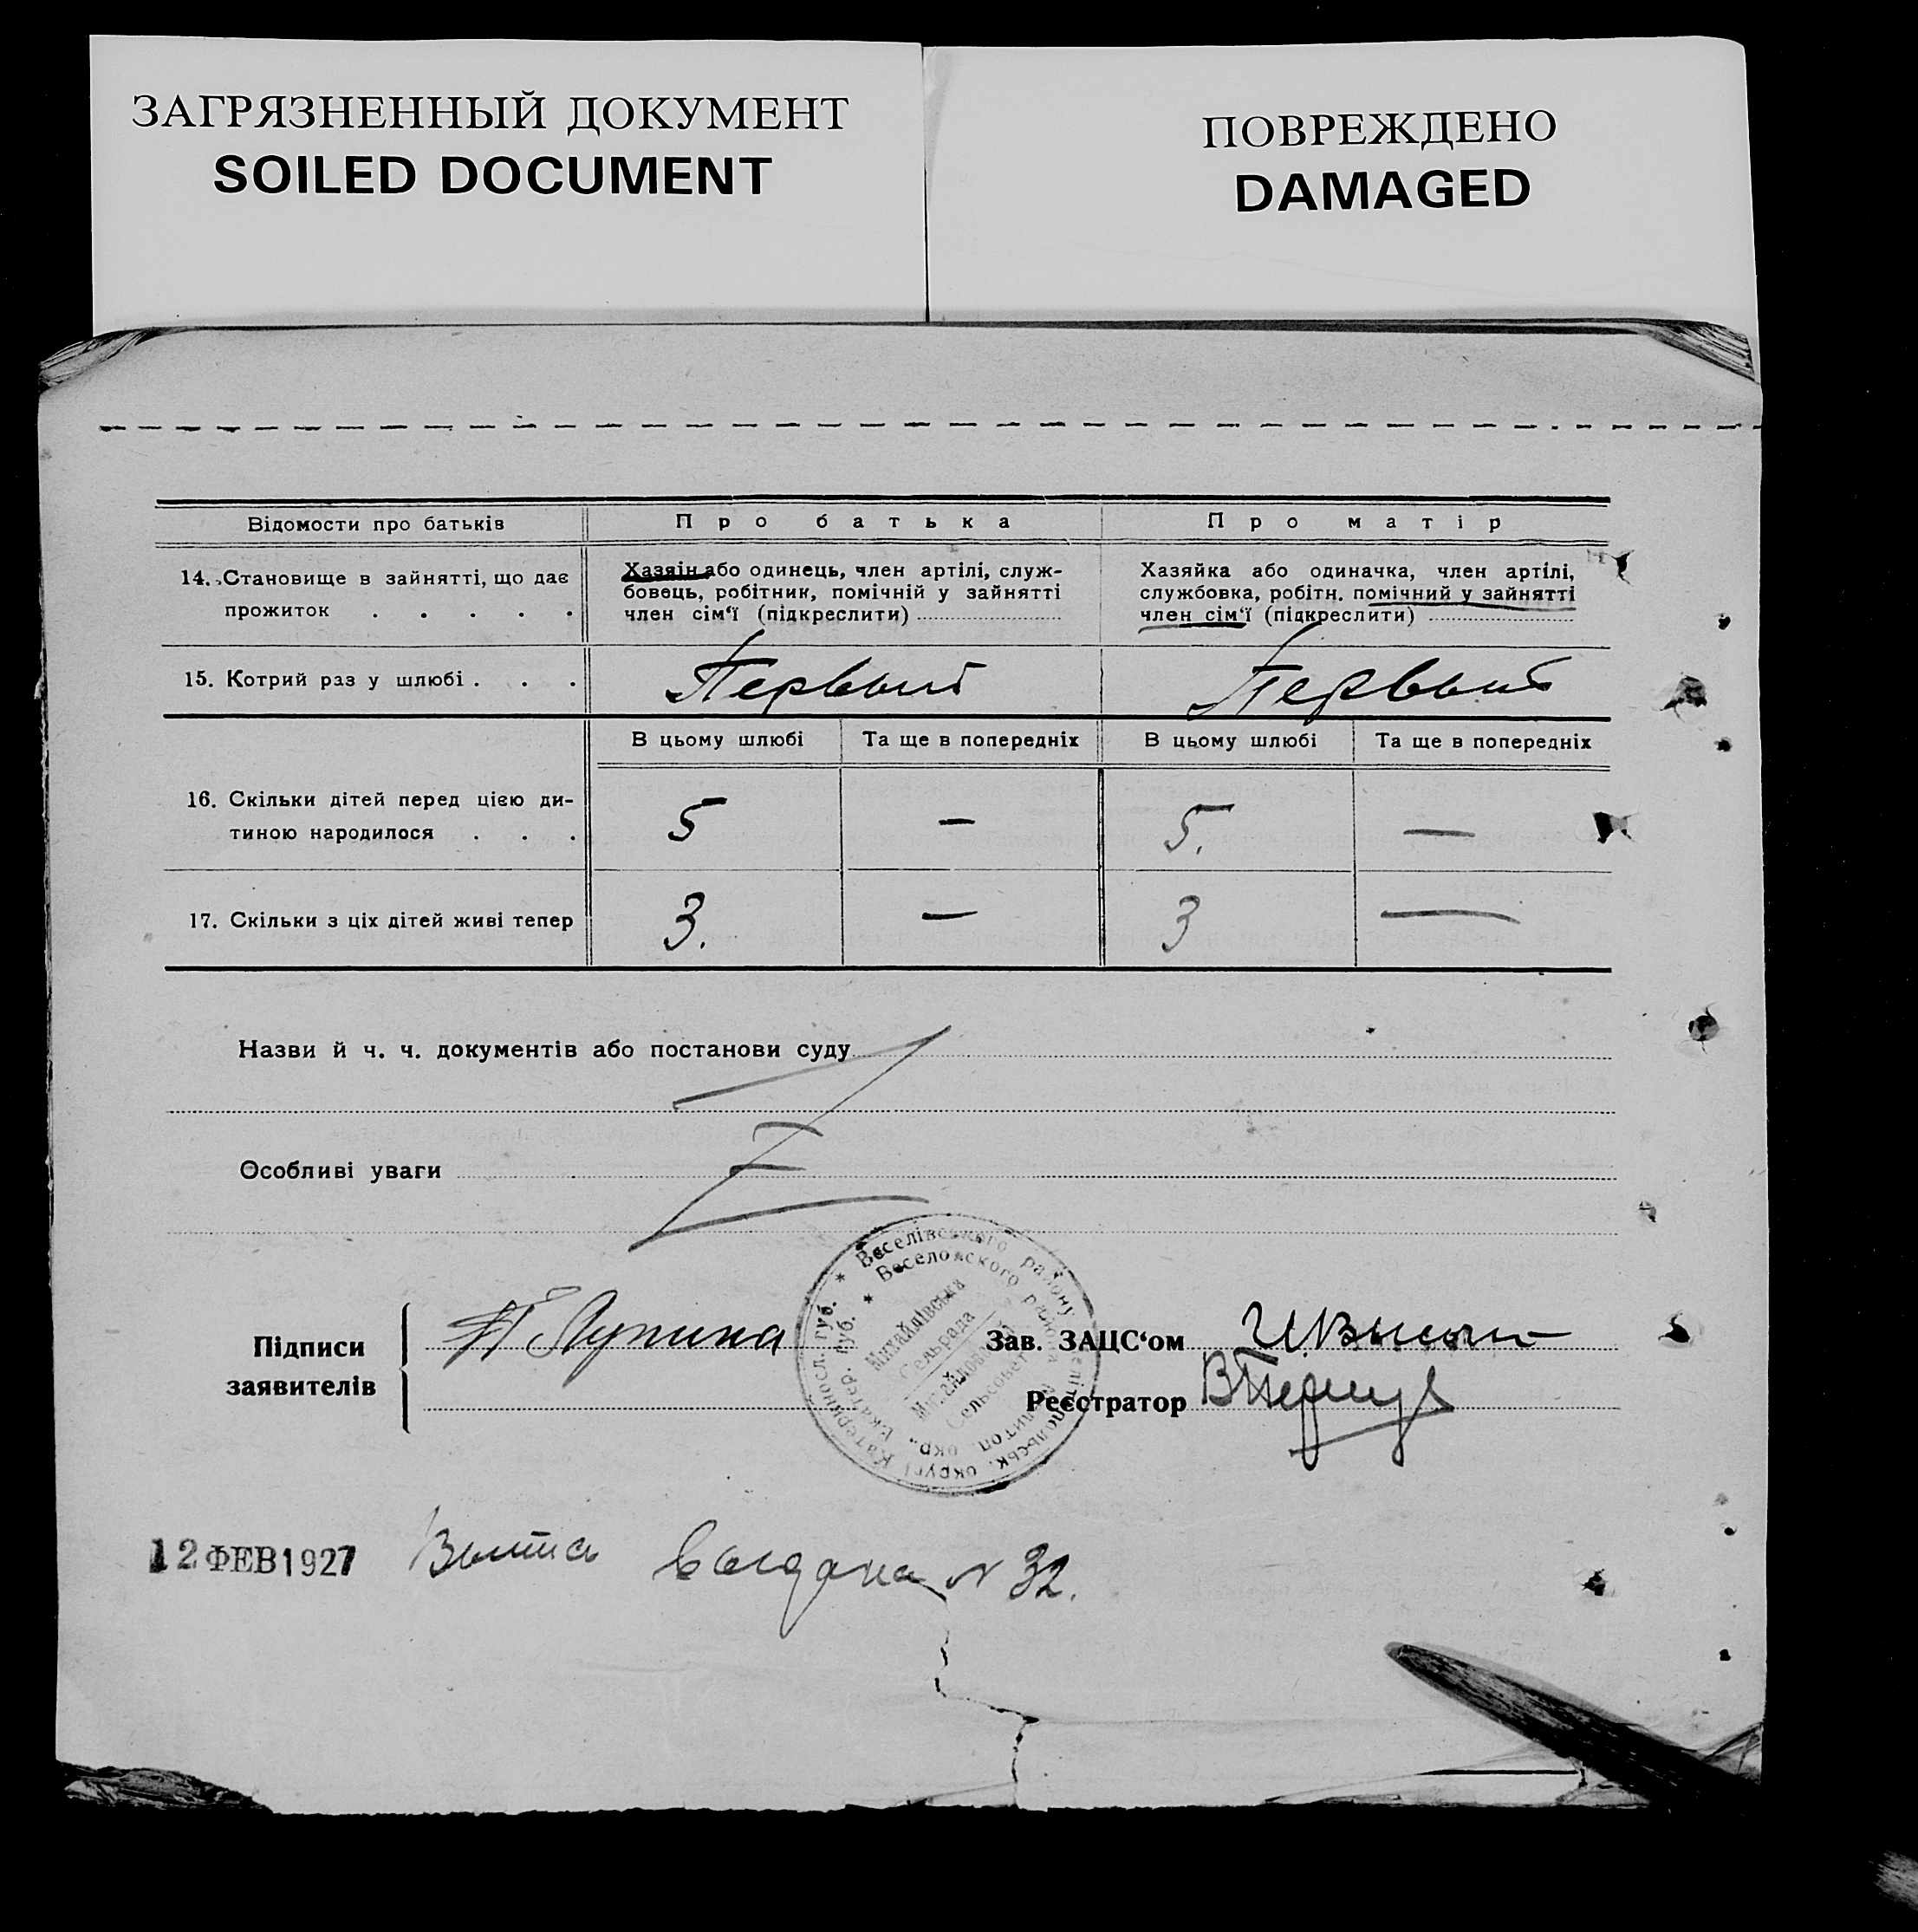 ЗАГРЯЗНЕННЫЙ ДОКУМЕНТ
SOILED DOCUMENT
ПОВРЕЖДЕНО
DAMAGED
Відомости про батьків
Про батька
Про матір
14. Становище в зайнятті, що дає
прожиток . . . . .
Хазяін або одинець, член артілі, служ-
бовець, робітник, помічній у зайнятті
член сім‘ї (підкреслити)
Хазяйка або одиначка, член артілі,
службовка, робітн. помічний у зайнятті
член сім‘ї (підкреслити)
15. Котрий раз у шлюбі . . .
Первый
Первый
В цьому шлюбі
Та ще в попередніх
В цьому шлюбі
Та ще в попередніх
16. Скільки дітей перед цією ди-
тиною народилося . . .
5
—
5.
—
17. Скільки з ціх дітей живі тепер
3.
—
3
—
Назви й ч. ч. документів або постанови суду
Особливі уваги
Підписи
заявителів
Лупина
Зав. ЗАЦС‘ом
Реєстратор
* Веселівського району Мелітопольськ. округі Катериносл. губ.
* Веселовского района Мелитоп. окр. Екатер. губ.
Михайлівська
Сельрада
Михайловский
Сельсовет
12 ФЕВ 1927
Выпись выдана № 32.